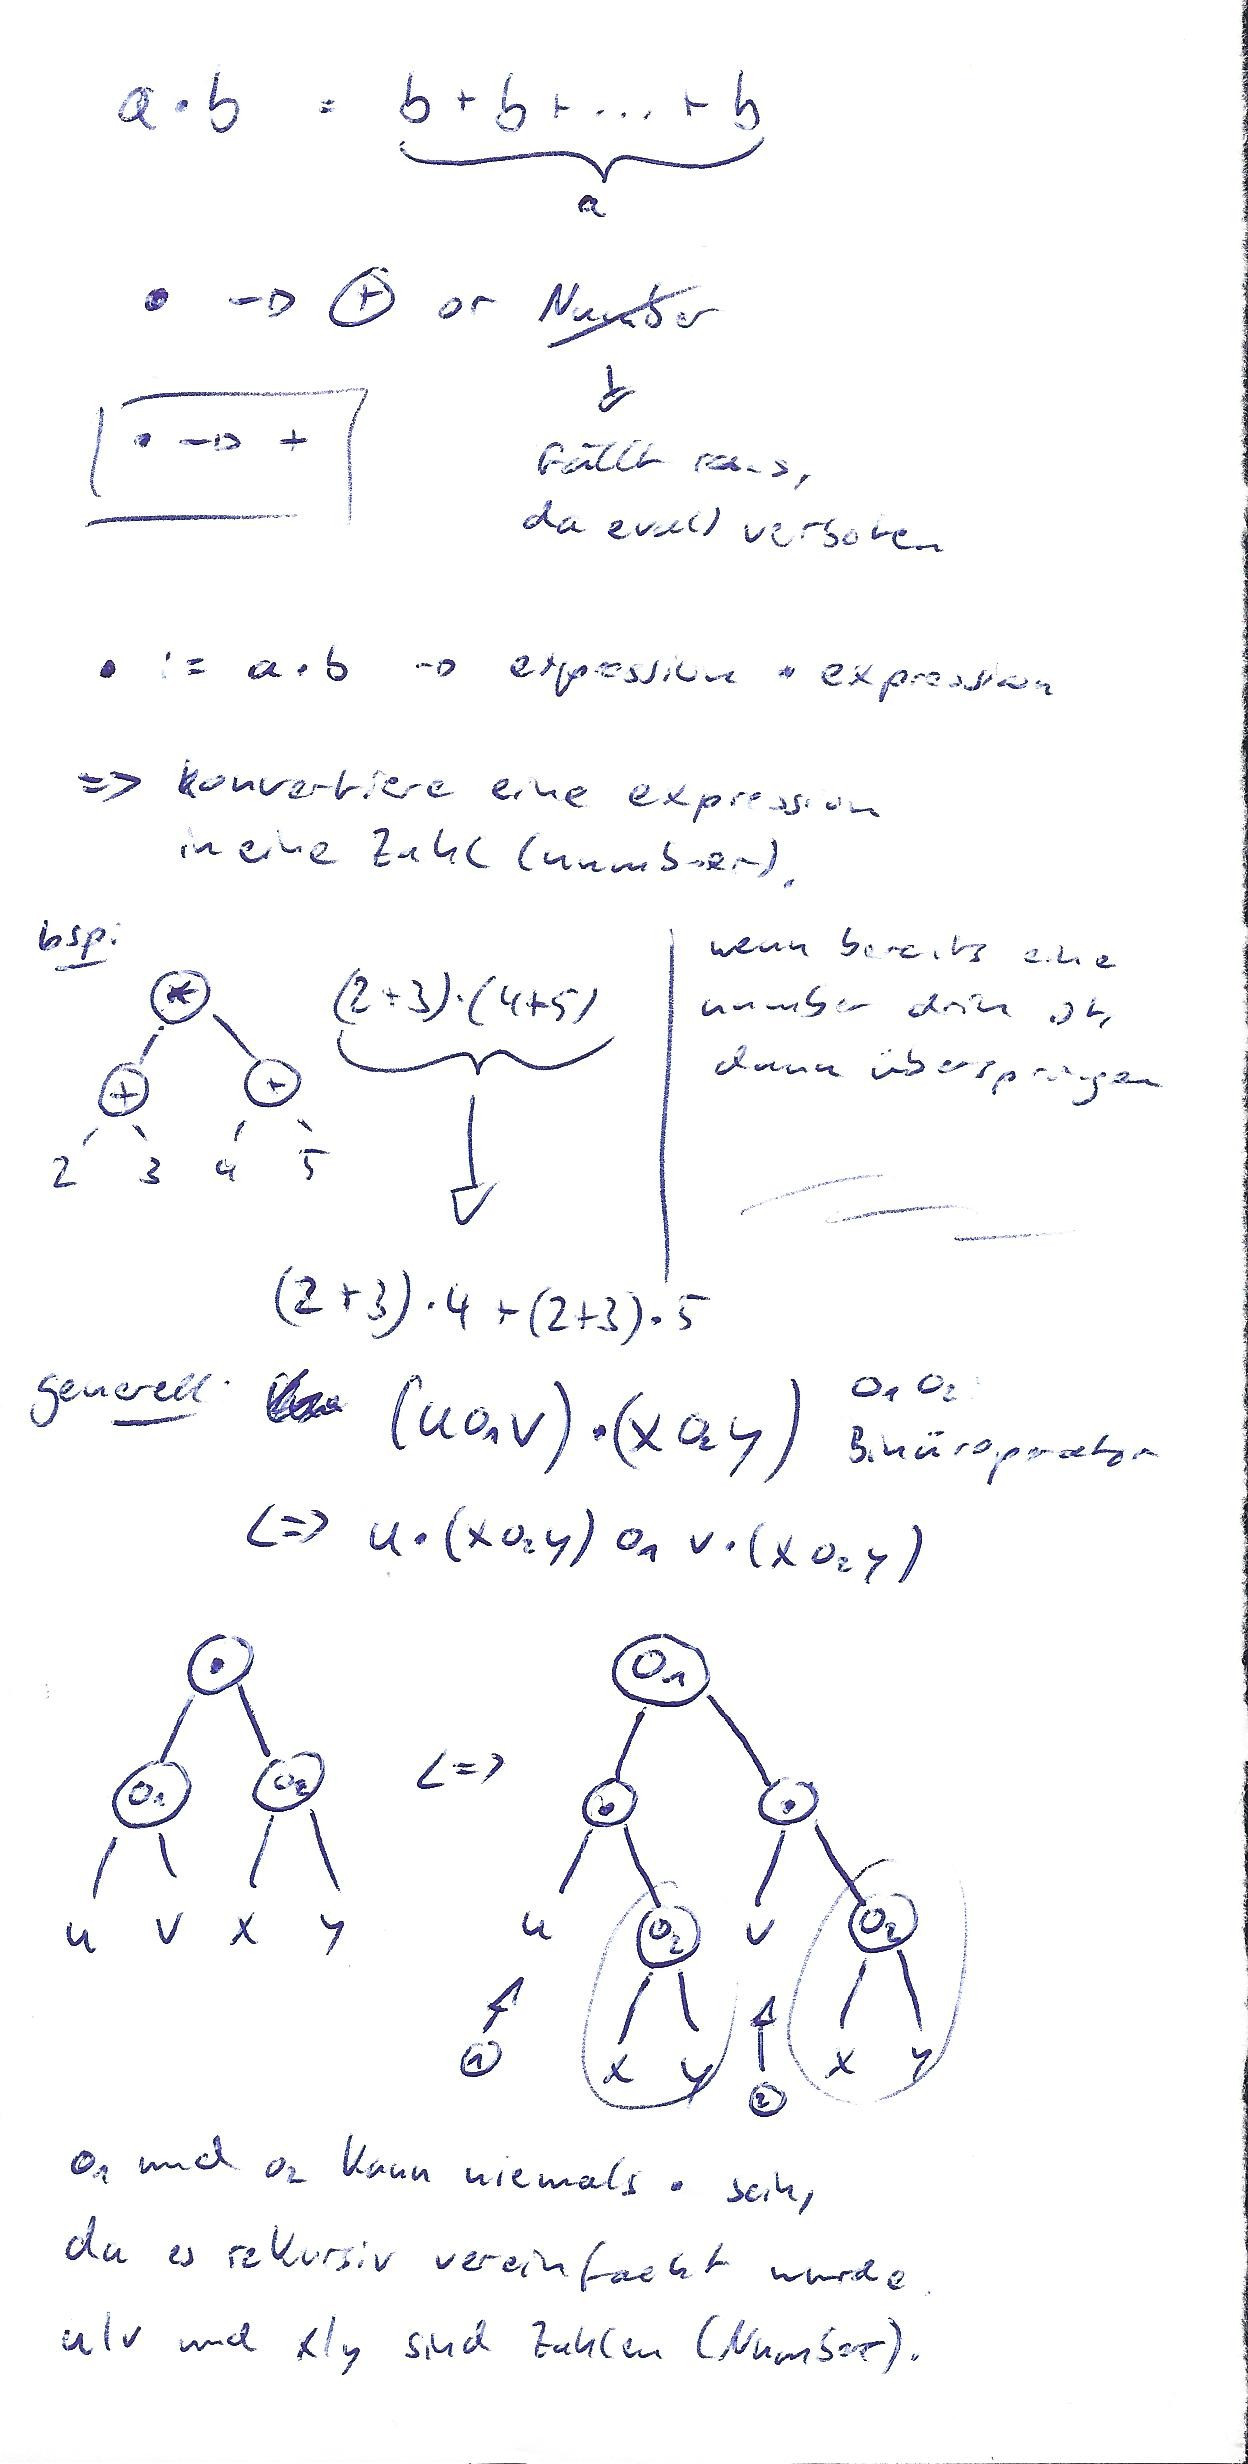 a · b = b + b + ... + b
a
• → ⊕ or Number
• → +
fällt raus,
da eval() verboten
• := a · b → expression • expression
=> Konvertiere eine expression
in eine Zahl (number).
bsp:
*
(2+3)·(4+5)
+ +
2 3 4 5
wenn bereits eine
number drin ist,
dann überspringen
(2+3)·4+(2+3)·5
generell: (u o₁ v)·(x o₂ y)
o₁ o₂:
Binäroperator
<=> u·(x o₂ y) o₁ v·(x o₂ y)
• o₁
o₁ o₂ <=> • •
u v x y u o₂ v o₂
1 x y 2 x y
o₁ und o₂ kann niemals • sein,
da es rekursiv vereinfacht wurde.
u/v und x/y sind Zahlen (Number).